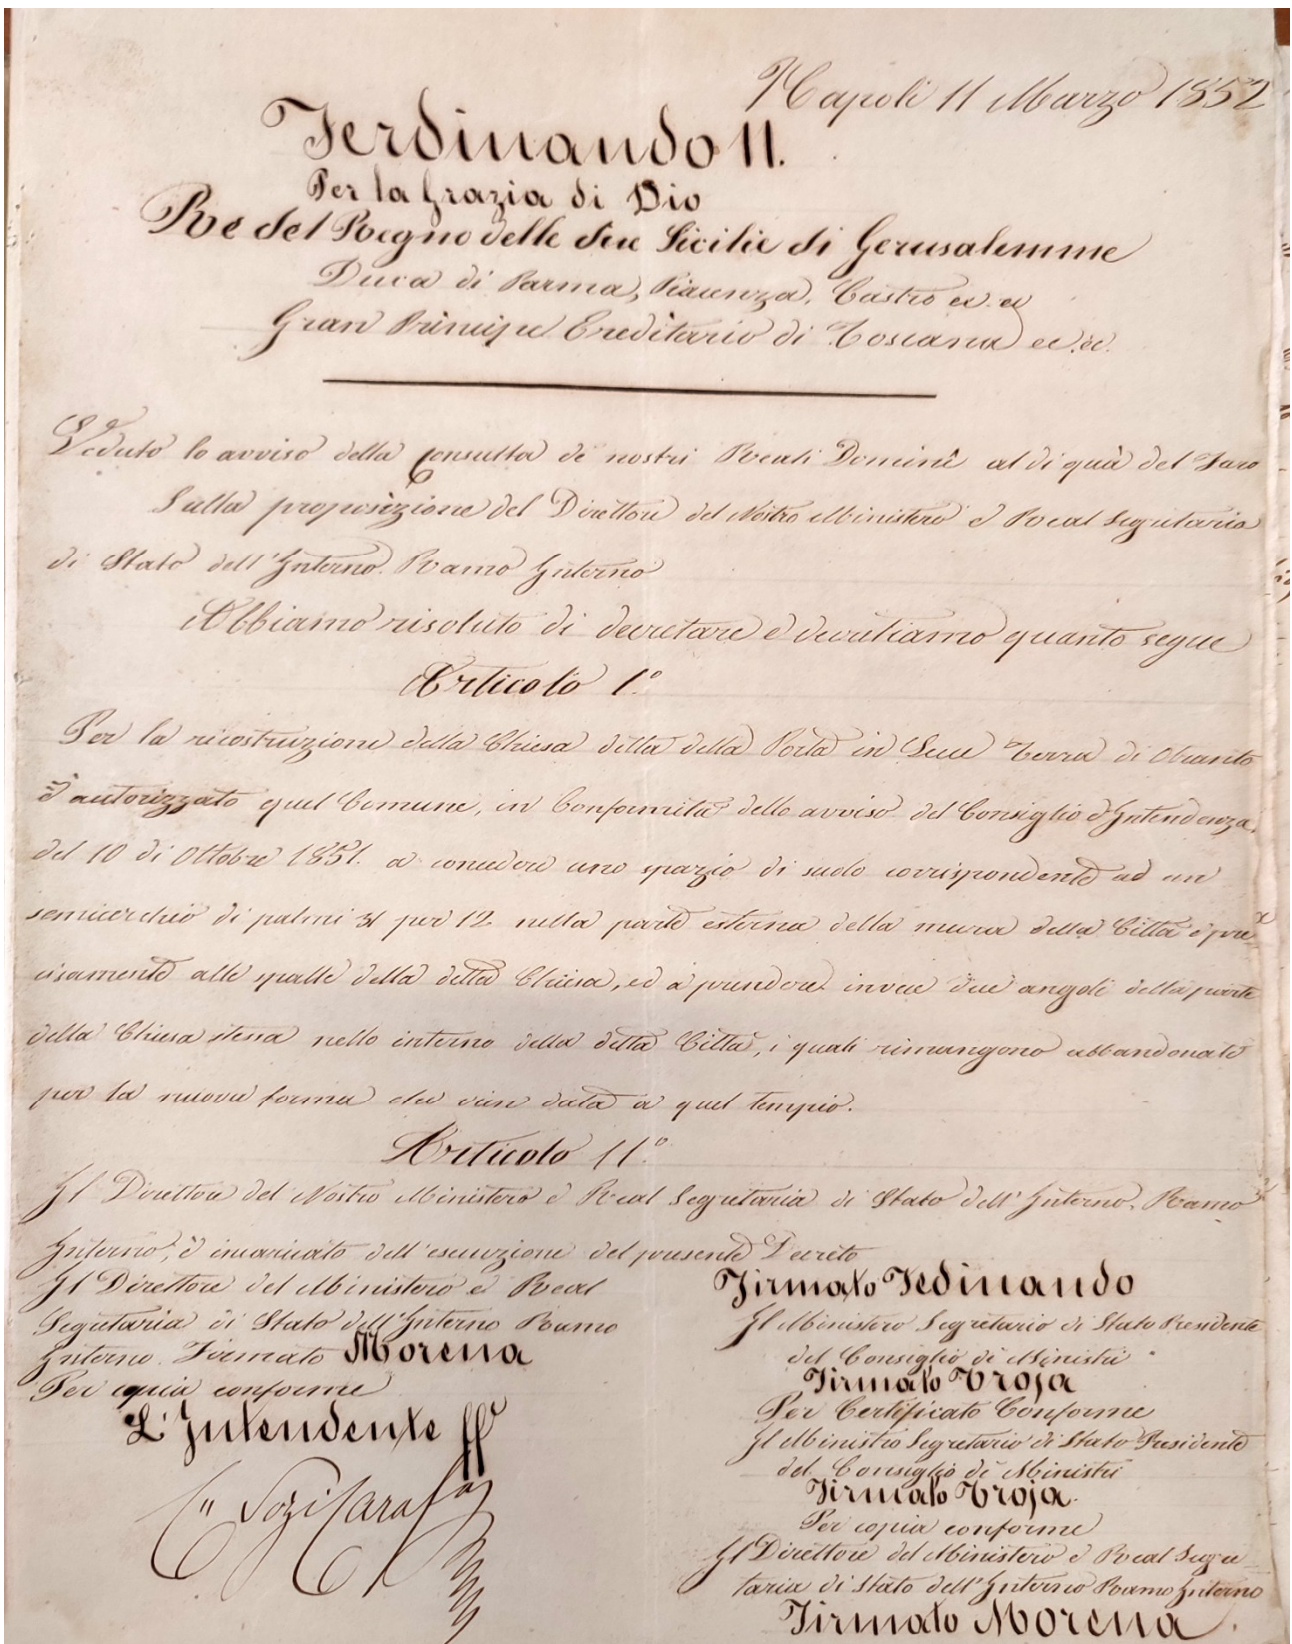 Napoli 11 Marzo 1852
Ferdinando II.
Per la Grazia di Dio
Re del Regno delle due Sicilie di Gerusalemme
Duca di Parma, Piacenza, Castro ec. ec
Gran Principe Ereditario di Toscana ec. ec.
Veduto lo avviso della Consulta de nostri Reali Dominî al di quà del Faro
Sulla proposizione del Direttore del Nostro Ministero e Real Segretaria
di Stato dell'Interno. Ramo Interno
Abbiamo risoluto di decretare e decretiamo quanto segue
Articolo 1.º
Per la ricostruzione della Chiesa detta della Porta in Lecce Terra di Otranto
è autorizzato quel Comune, in Conformità dello avviso del Consiglio d'Intendenza,
del 10 di Ottobre 1851. a concedere uno spazio di suolo corrispondente ad un
semicerchio di palmi 31 per 12 nella parte esterna della mura della Città e pre
cisamente alle spalle della detta Chiesa, ed a prendere invece due angoli della parte
della Chiesa stessa nello interno della detta Città, i quali rimangono abbandonati
per la nuova forma che vien data a quel tempio.
Articolo 11.º
Il Direttore del Nostro Ministero e Real Segretaria di Stato dell'Interno. Ramo
Interno, è incaricato dell'esecuzione del presente Decreto
Firmato Fedinando
Il Direttore del Ministero e Real
Segretaria di Stato dell'Interno Ramo
Interno. Firmato Morena
Per copia conforme
L'Intendente
Sozi Carafa
Il Ministero Segretario di Stato Presidente
del Consiglio de Ministri
Firmato Troja
Per Certificato Conforme
Il Ministro Segretario di Stato Presidente
del Consiglio de Ministri
Firmato Troja.
Per copia conforme
Il Direttore del Ministero e Real Segre
taria di Stato dell'Interno Ramo Interno
Firmato Morena.